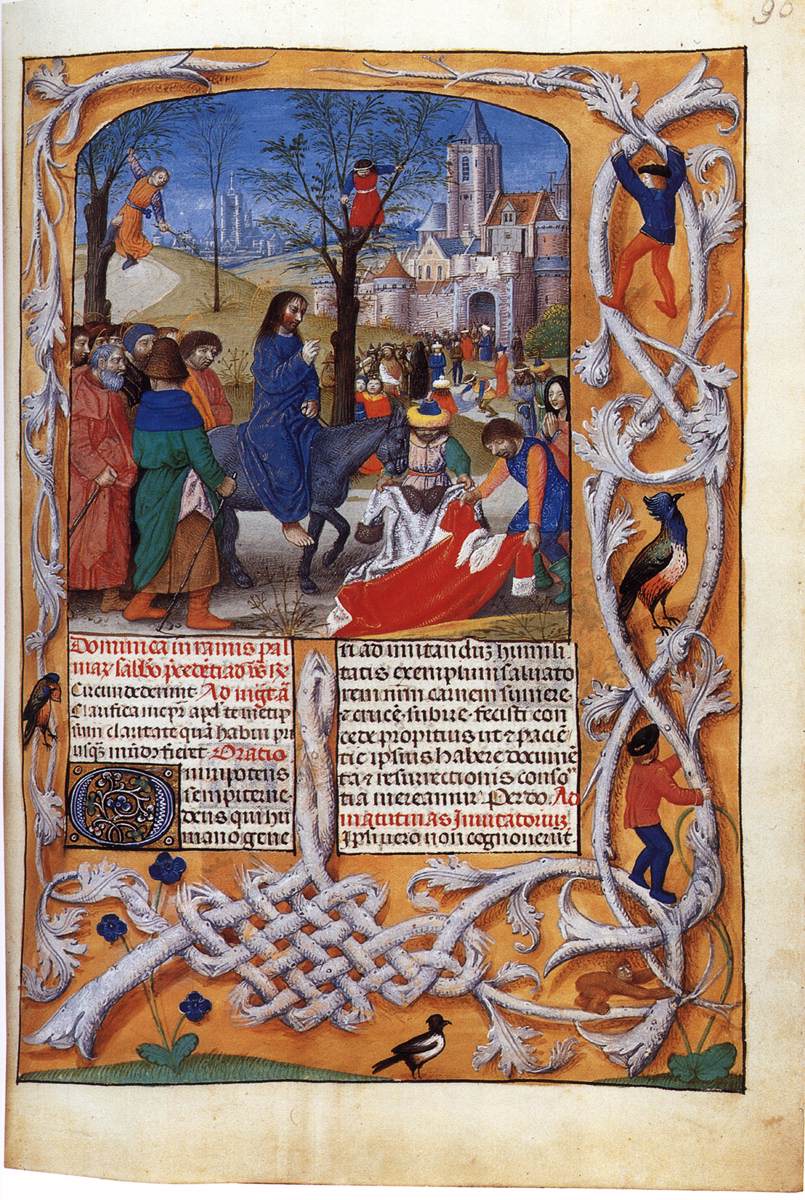 90
Dominica in ramis pal
mar sabbo p̄cedēti ad vs̄ R̄
Circundederunt Ad mgt ā
Clarifica me pr̄ apd' temetip
sum claritate quā habui pri
usq̄ mūd' fieret Oratio
Omnipotens
sempiterne
deus qui hu
mano gene
ri ad imitanduȝ humili
tatis exemplum saluato
rem nr̄m carnem sumere
⁊ crucē subire fecisti con
cede propitius ut ⁊ paciē
tie ipsius habere documē
ta ⁊ resurrectionis conso
tia mereamur Per do Ad
matutinas Inuitatoriuȝ
Ipsi vero non cognouerūt